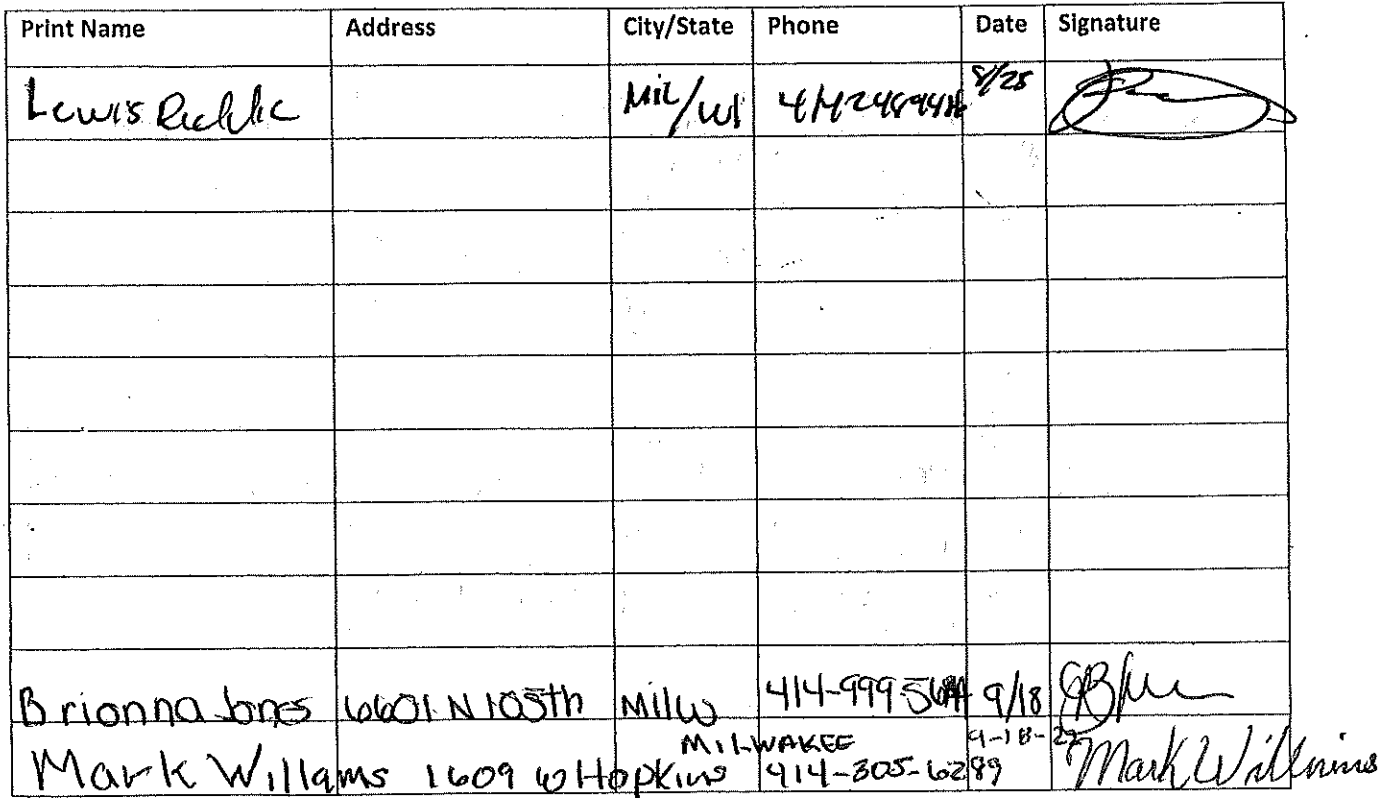 Print Name Address City/State Phone Date Signature
Lewis Mil/WI 8/28
Brionna Jones 6601 N 105th Milw 9/18
MILWAKEE
Mark Willams 1609 W Hopkins 414-305-6289 Mark Willams